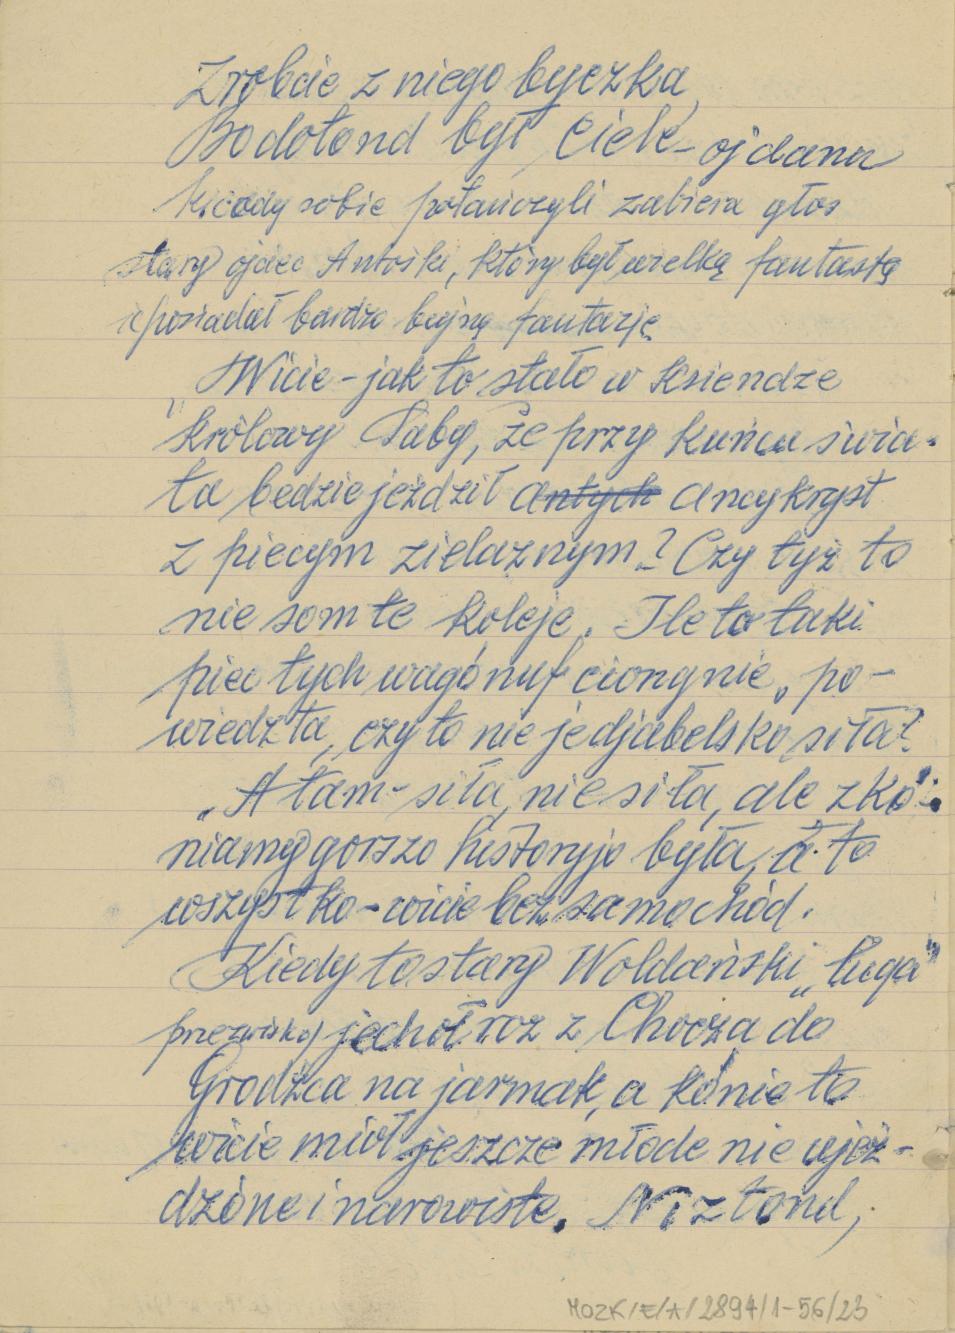 Zróbcie z niego byczka,
Bo dotond był ciele - oj dana
Kiedy sobie potańczyli zabiera głos
stary ojciec Antośki, który był wielką fantastą
i posiadał bardzo bujną fantazję
"Wicie - jak to stało w ksiendze
królowy Saby, że przy kuńcu świa-
ta bedzie jeździł antych ancykryst
z piecym zielaznym? Czy tyż to
nie som te koleje. Ile to taki
piec tych wagónuf ciongnie, po-
wiedzta, czy to nie je djabelsko siła?
„A tam - siła, nie siła, ale z kó-
niamy gorszo historyjo była, a to
wszystko - wicie bez samochód.
Kiedy to stary Woldański „Ługa"
przezwisko) jechoł roz z Chocza do
Grodźca na jarmak, a kónie to
wicie mioł jeszcze młode nie ujeż-
dżóne i narowiste. Ni z tond,
MOZK/E/A/2894/1-56/23